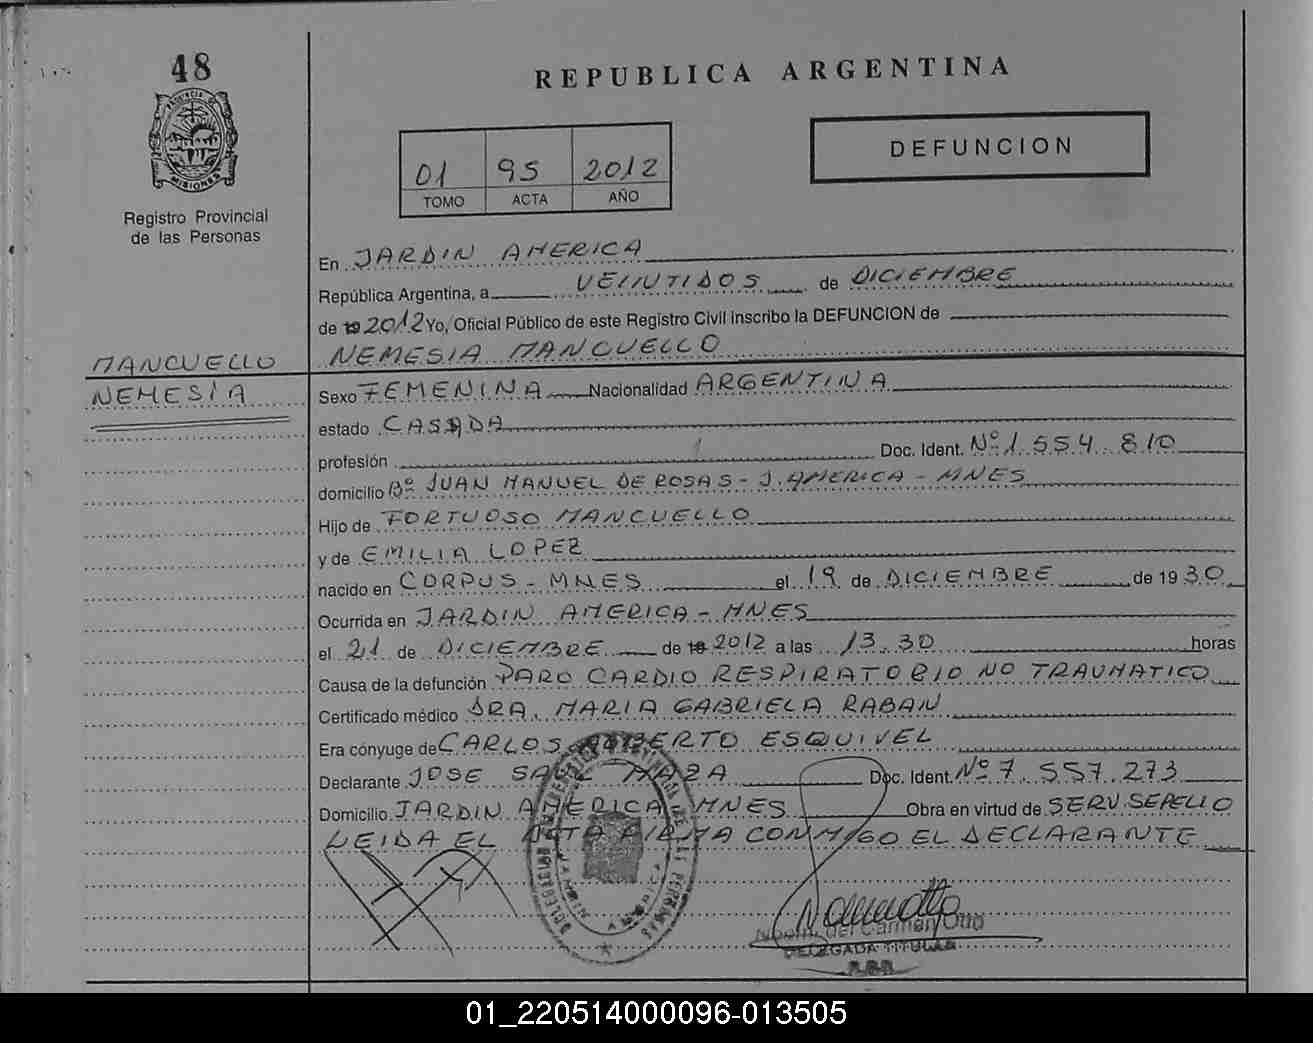 48
REPUBLICA ARGENTINA
PROVINCIA DE
MISIONES
Registro Provincial
de las Personas
01 95 2012
TOMO ACTA AÑO
DEFUNCION
En JARDIN AMERICA
República Argentina, a VEINTIDOS de DICIEMBRE
de 19 2012 Yo, Oficial Público de este Registro Civil inscribo la DEFUNCION de
MANCUELLO
NEMESIA
NEMESIA MANCUELLO
Sexo FEMENINA Nacionalidad ARGENTINA
estado CASADA
profesión Doc. Ident. Nº 1.554.810
domicilio Bº JUAN MANUEL DE ROSAS - J. AMERICA - MNES
Hijo de FORTUOSO MANCUELLO
y de EMILIA LOPEZ
nacido en CORPUS - MNES el 19 de DICIEMBRE de 1930
Ocurrida en JARDIN AMERICA - MNES
el 21 de DICIEMBRE de 19 2012 a las 13.30 horas
Causa de la defunción PARO CARDIO RESPIRATORIO NO TRAUMATICO
Certificado médico DRA. MARIA GABRIELA RABAN
Era cónyuge de CARLOS ALBERTO ESQUIVEL
Declarante JOSE SAUL MAZA Doc. Ident. Nº 7.557.273
Domicilio JARDIN AMERICA MNES Obra en virtud de SERV. SEPELIO
LEIDA EL ACTA FIRMA CONMIGO EL DECLARANTE
JARDIN AMERICA
del Carmen Otto
DELEGADA TITULAR
01_220514000096-013505